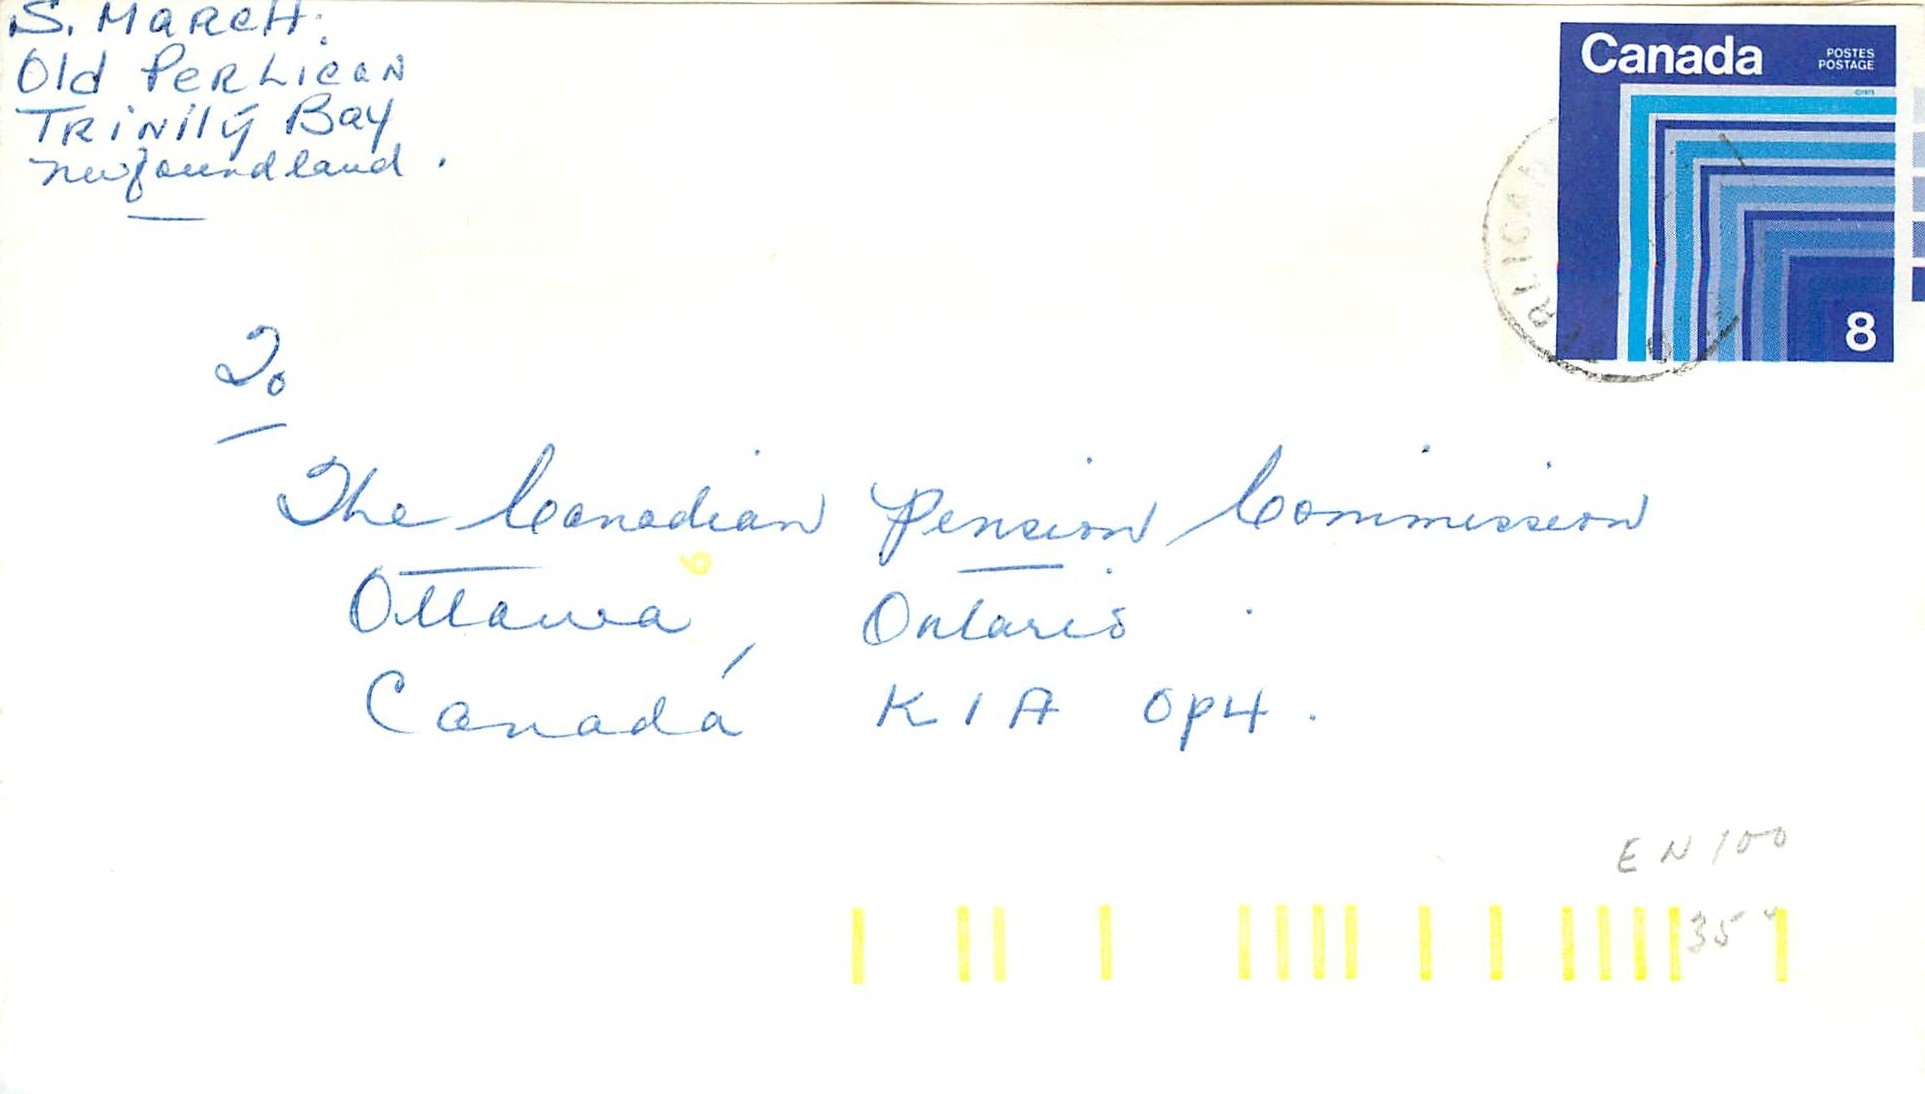 S. MARCH.
Old PERLICAN
TRINITY Bay
Newfoundland.
Canada
POSTES
POSTAGE
8
PERLICAN
To
The Canadian Pension Commission
Ottawa, Ontario.
Canada K1A 0P4.
EN100
35